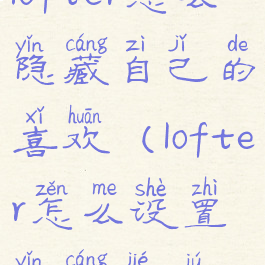 lofter怎么
yǐn cáng zì jǐ de
隐藏自己的
xǐ huān
喜欢（lofte
zěn me shè zhì
r怎么设置
yǐn cáng jié jú